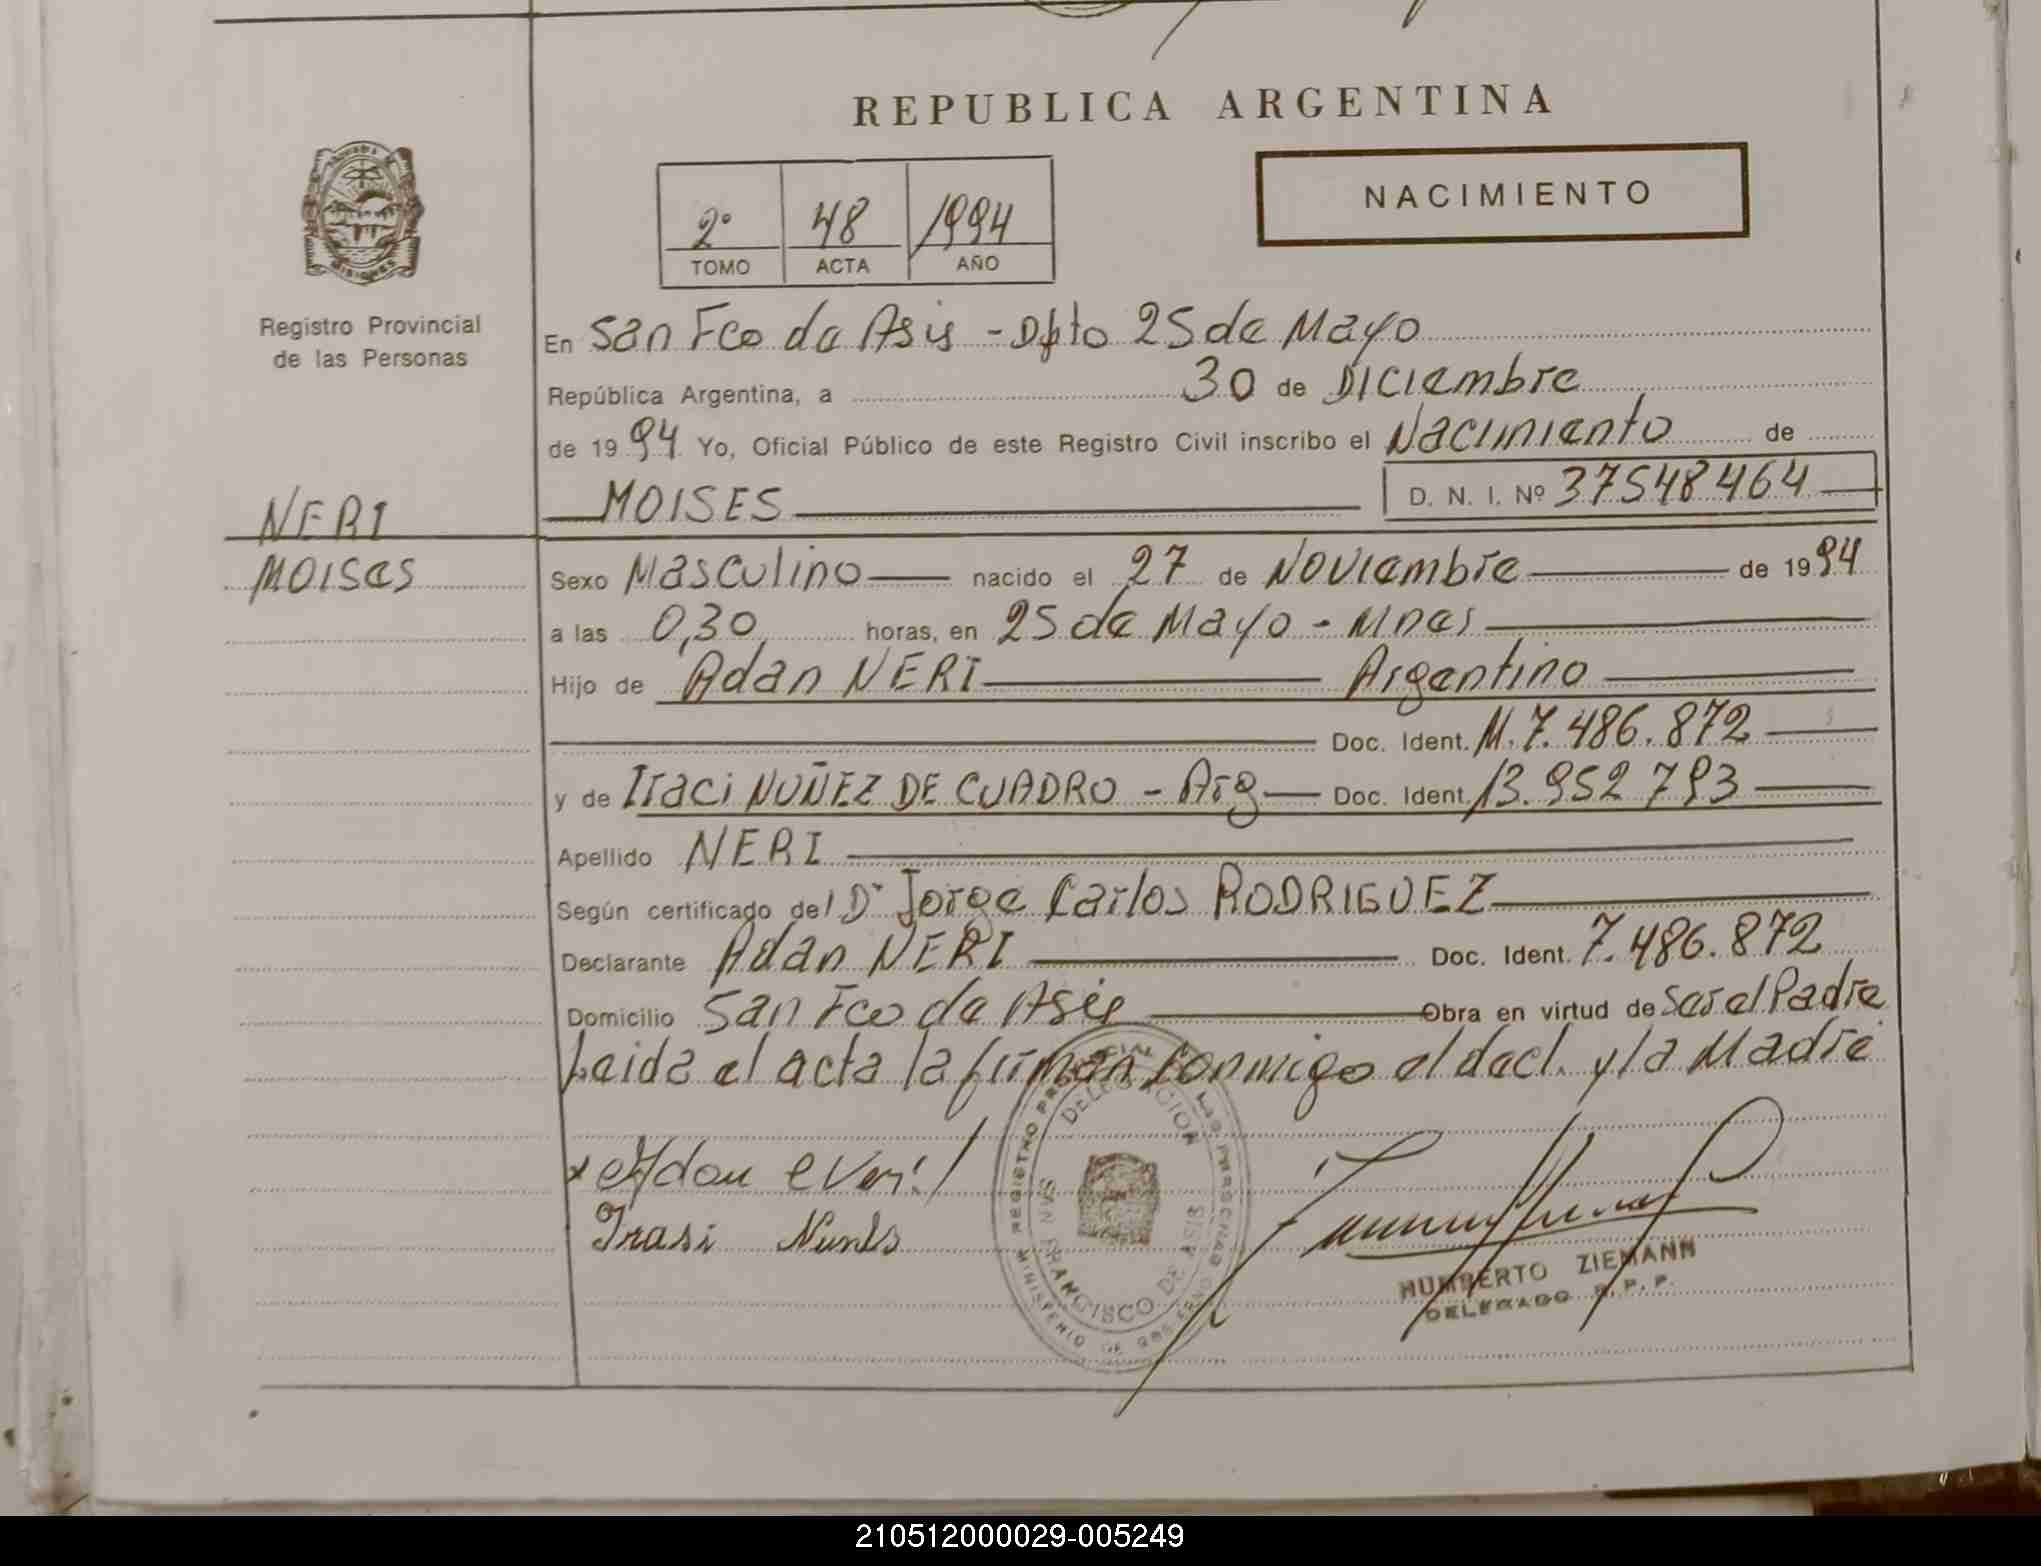 REPUBLICA ARGENTINA
NACIMIENTO
2° 48 1994
TOMO ACTA AÑO
MISIONES
Registro Provincial
de las Personas
En San Fco de Asis - Dpto 25 de Mayo
República Argentina, a 30 de Diciembre
de 1994 Yo, Oficial Público de este Registro Civil inscribo el Nacimiento de
NERI
MOISES
MOISES D. N. I. Nº 37548464
Sexo Masculino nacido el 27 de Noviembre de 1994
a las 0,30 horas, en 25 de Mayo - Mnes
Hijo de Adan NERI Argentino
Doc. Ident. M.7.486.872
y de Iraci NUÑEZ DE CUADRO - Arg Doc. Ident. 13.952793
Apellido NERI
Según certificado del Dr Jorge Carlos RODRIGUEZ
Declarante Adan NERI Doc. Ident. 7.486.872
Domicilio San Fco de Asis Obra en virtud de Ser el Padre
Leida el acta la firman conmigo el decl. y la Madre
x Adan Neri
Irasi Nunes
REGISTRO PROVINCIAL DE LAS PERSONAS
MINISTERIO DE GOBIERNO
DELEGACION
SAN FRANCISCO DE ASIS
HUMBERTO ZIEMANN
DELEGADO R. P. P.
210512000029-005249